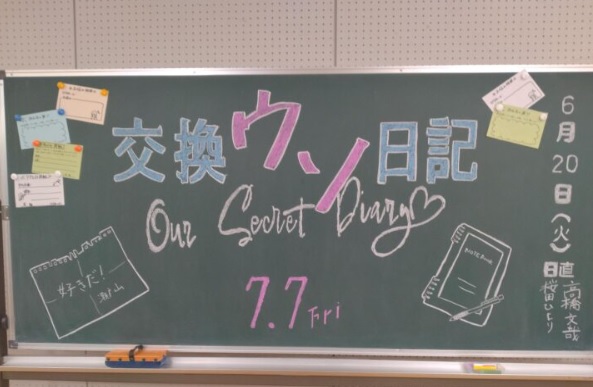 交換ウソ日記
Our Secret Diary
7.7 Fri
好きだ!
瀬山
NOTE BOOK
6月20日(火)
日直
高橋文哉
桜田ひより